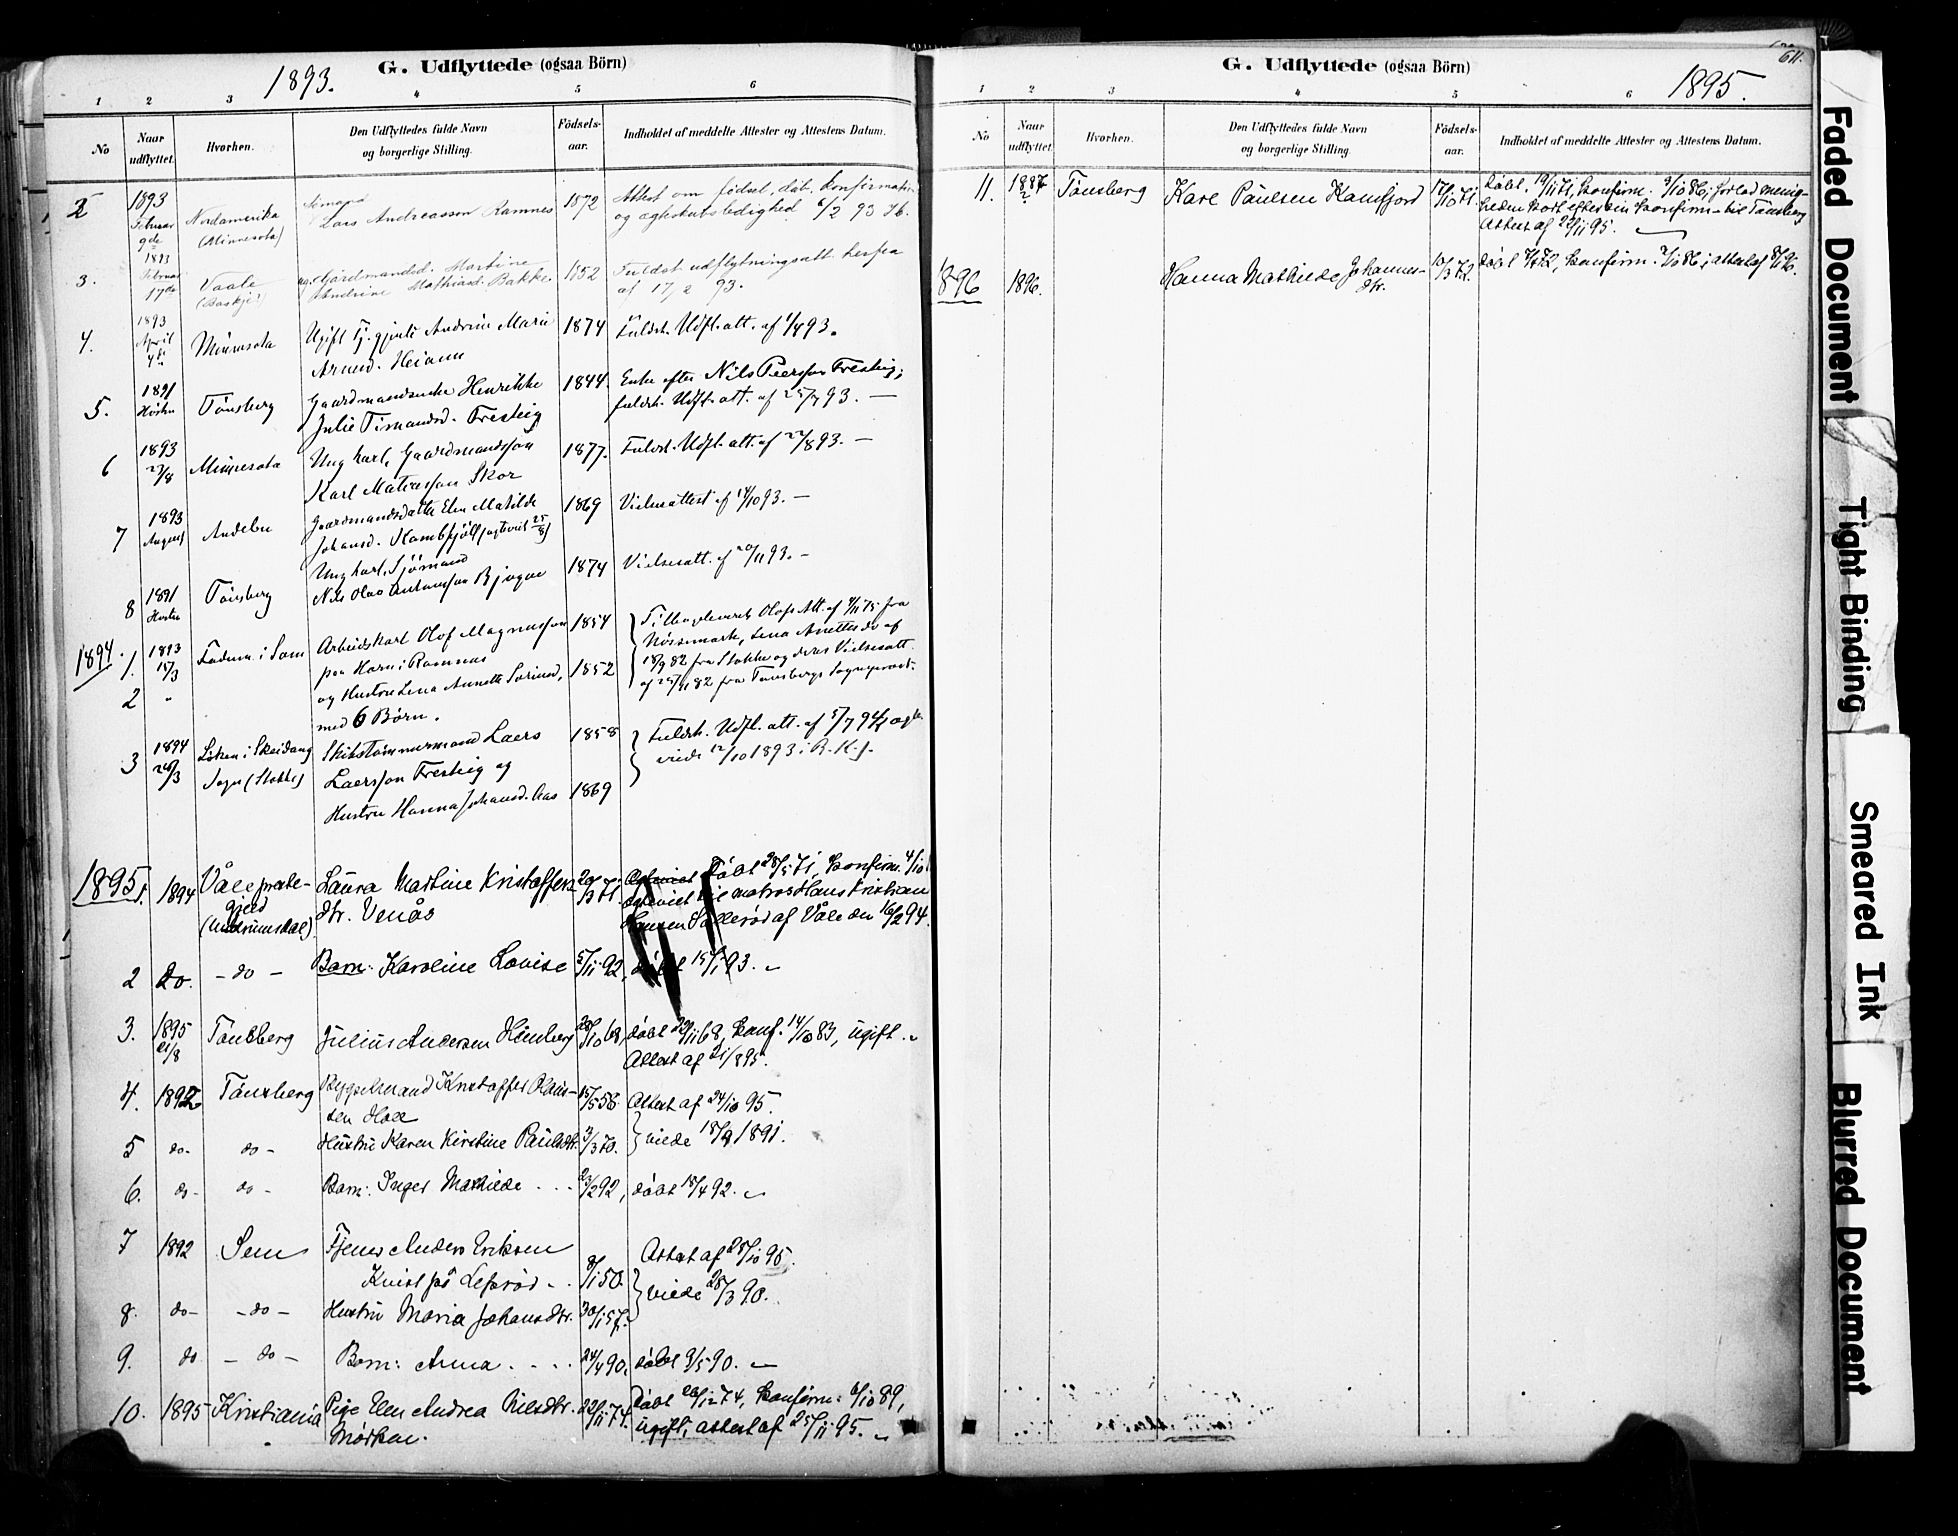 G. Udflyttede (ogsaa Börn)
1893.
1 2 3 4 5 6
No
Naar udflyttet.
Hvorhen.
Den Udflyttedes fulde Navn og borgerlige Stilling.
Födsels-aar.
Indholdet af meddelte Attester og Attestens Datum.
2 1893 Februar 9de Nordamerika (Minnesota) Sømand Lars Andreassen Ramnes 1872 Attest om fødsel, dåb, konfirmation
og ægteskabsledighed 6/2 93
3. 1893 Februar 17de Vaale Gårdmandsd. Martine 1852 Fuldst. udflytningsatt. herfra
Andrine Mathiasd. Bakke af 17/2 93.
4. 1893 April 4de Minnesota Ugift Tj. gjente Andrine Marie 1874 Fuldst. Udfl. att. af 1/4 93.
5. 1891 Høsten Tönsberg Gaardmandsenke Henrikke 1844. Enke efter Nils Peersson Fresteig;
Julie Timandsd. Fresteig fuldst. Udfl. att. af 25/7 93. —
6 1893 27/8 Minnesota Ungkarl, Gaardmandssøn 1877. Fuldst. Udfl. att. af 22/8 93. —
Karl Matiasson Skor
7 1893 August Andebu Gaardmandsdatter Elen Matilde 1869 Vielseattest af 14/10 93. —
Johansd.
8 1891 Høsten Tönsberg Ungkarl, Sjømand 1874 Vielsesatt. af 20/11 93. —
Nils Olaus Antonsson Bjugne
1894. 1. 1893 15/3 i Som Arbeidskarl Olof Magnusson 1854 Tilbageleveret Olofs Att. af 4/11 75 fra
paa Horn i Ramnes Nössemark, Lena Anettes do af
2 " og Hustru Lena Annette Sörensd, 1852 18/9 82 fra Stokke og deres Vielsesatt.
med 6 Börn. af 25/11 82 fra Tønsbergs Sogneprest.
3 1894 24/3 Löken i Skeidang Skibstömmermand Laers 1858 Fuldst. Udfl. att. af 5/7 94,
Sogn (Stokke) Laersson Fresteig og viede 12/10 1893 i R. K.
Hustru Hanna Johansd. Aas 1869
1895 1. 1894 Våle preste- Laura Martine Kristoffers- 20/3 71. Døbt 28/5 71, konfirm. 4/10
gjeld dtr. Venås Ægteviet til matros Hans Kristian
(Undrumsdal) Hansen Sollerød af Våle den 16/2 94.
2 do. – do – Barn: Karoline Lovise 5/11 92, døbt 15/1 93.
3. 1895 21/8 Tönsberg Julius Andersen Himberg 28/10 68, døbt 29/11 68, konf. 14/10 83, ugift.
Attest af 21/8 95.
4. 1892 Tönsberg Bygselmand Kristoffer Olaus- 15/5 58. Attest af 24/10 95.
sen
5 do. do – Hustru Karen Kirstine Paulsdtr. 3/3 70. viede 18/9 1891.
6. do – do – Barn: Inger Mathilde 23/2 92, døbt 18/4 92.
7 1892 Sem Tjener Anders Eriksen Attest af 25/10 95.
på Lefsrød 8/1 50. viede 28/3 90.
8. do – – do – Hustru Maria Johansdtr. 30/1 57.
9. do – do – Barn: Anna 24/4 90. døbt 9/5 90. —
10. 1895 Kristiania Pige Elen Andrea Nilsdtr. 22/11 74. Døbt 26/12 74, konfirm: 6/10 89,
Mørken. ugift, attest af 25/11 95.
G. Udflyttede (ogsaa Börn)
1895.
611.
1 2 3 4 5 6
No
Naar udflyttet.
Hvorhen.
Den Udflyttedes fulde Navn og borgerlige Stilling.
Födsels-aar.
Indholdet af meddelte Attester og Attestens Datum.
11. 1887 Tönsberg Kare Paulsen Kamfjord 17/10 71. Døbt. 19/11 71, konfirm. 3/10 86, forlod menig-
heden kort efter sin konfirm. til Tönsberg
Attest af 22/11 95.
1896 1896. Hanna Mathilde Johannes- 10/3 72. døbt 7/4 72, konfirm. 3/10 86, attest af 8/1 96.
dtr.
Faded Document
Tight Binding
Smeared Ink
Blurred Document